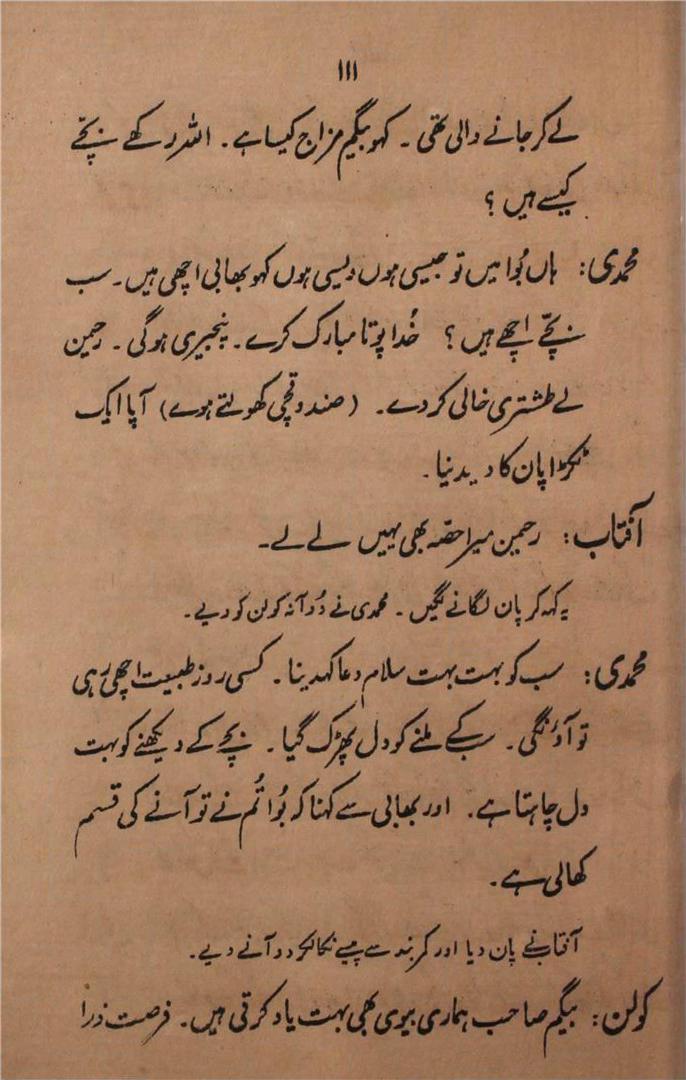 ۱۱۱
لے کر جانے والی تھی ۔ کہو بیگم مزاج کیسا ہے ۔ اللہ رکھے بچّے
کیسے ہیں ؟
محمدی : ہاں بُوا میں تو جیسی ہوں ویسی ہوں کہو بھابی اچھی ہیں ۔ سب
بچّے اچھے ہیں ؟ خُدا پوتا مبارک کرے ۔ پنجیری ہوگی ۔ رحمین
لے طشتری خالی کر دے ۔ ( صندوقچی کھولتے ہوے ) آپا ایک
ٹکڑا پان کا دیدنیا ۔
آفتاب : رحمین میرا حصّہ بھی یہیں لے لے ۔
یہ کہہ کر پان لگانے لگیں ۔ محمدی نے دُو آنہ کولن کو دیے ۔
محمدی : سب کو بہت بہت سلام دعا کہدینا ۔ کسی روز طبیعت اچھی رہی
تو آؤنگی ۔ سبکے ملنے کو دل پھڑک گیا ۔ بچے کے دیکھنے کو بہت
دل چاہتا ہے ۔ اور بھابی سے کہنا کہ بُوا تُم نے تو آنے کی قسم
کھالی ہے ۔
آفتاب نے پان دیا اور کمربند سے پیسے نکالکر دو آنے دیے ۔
کولن : بیگم صاحب ہماری بیوی بھی بہت یاد کرتی ہیں ۔ فرصت ذرا